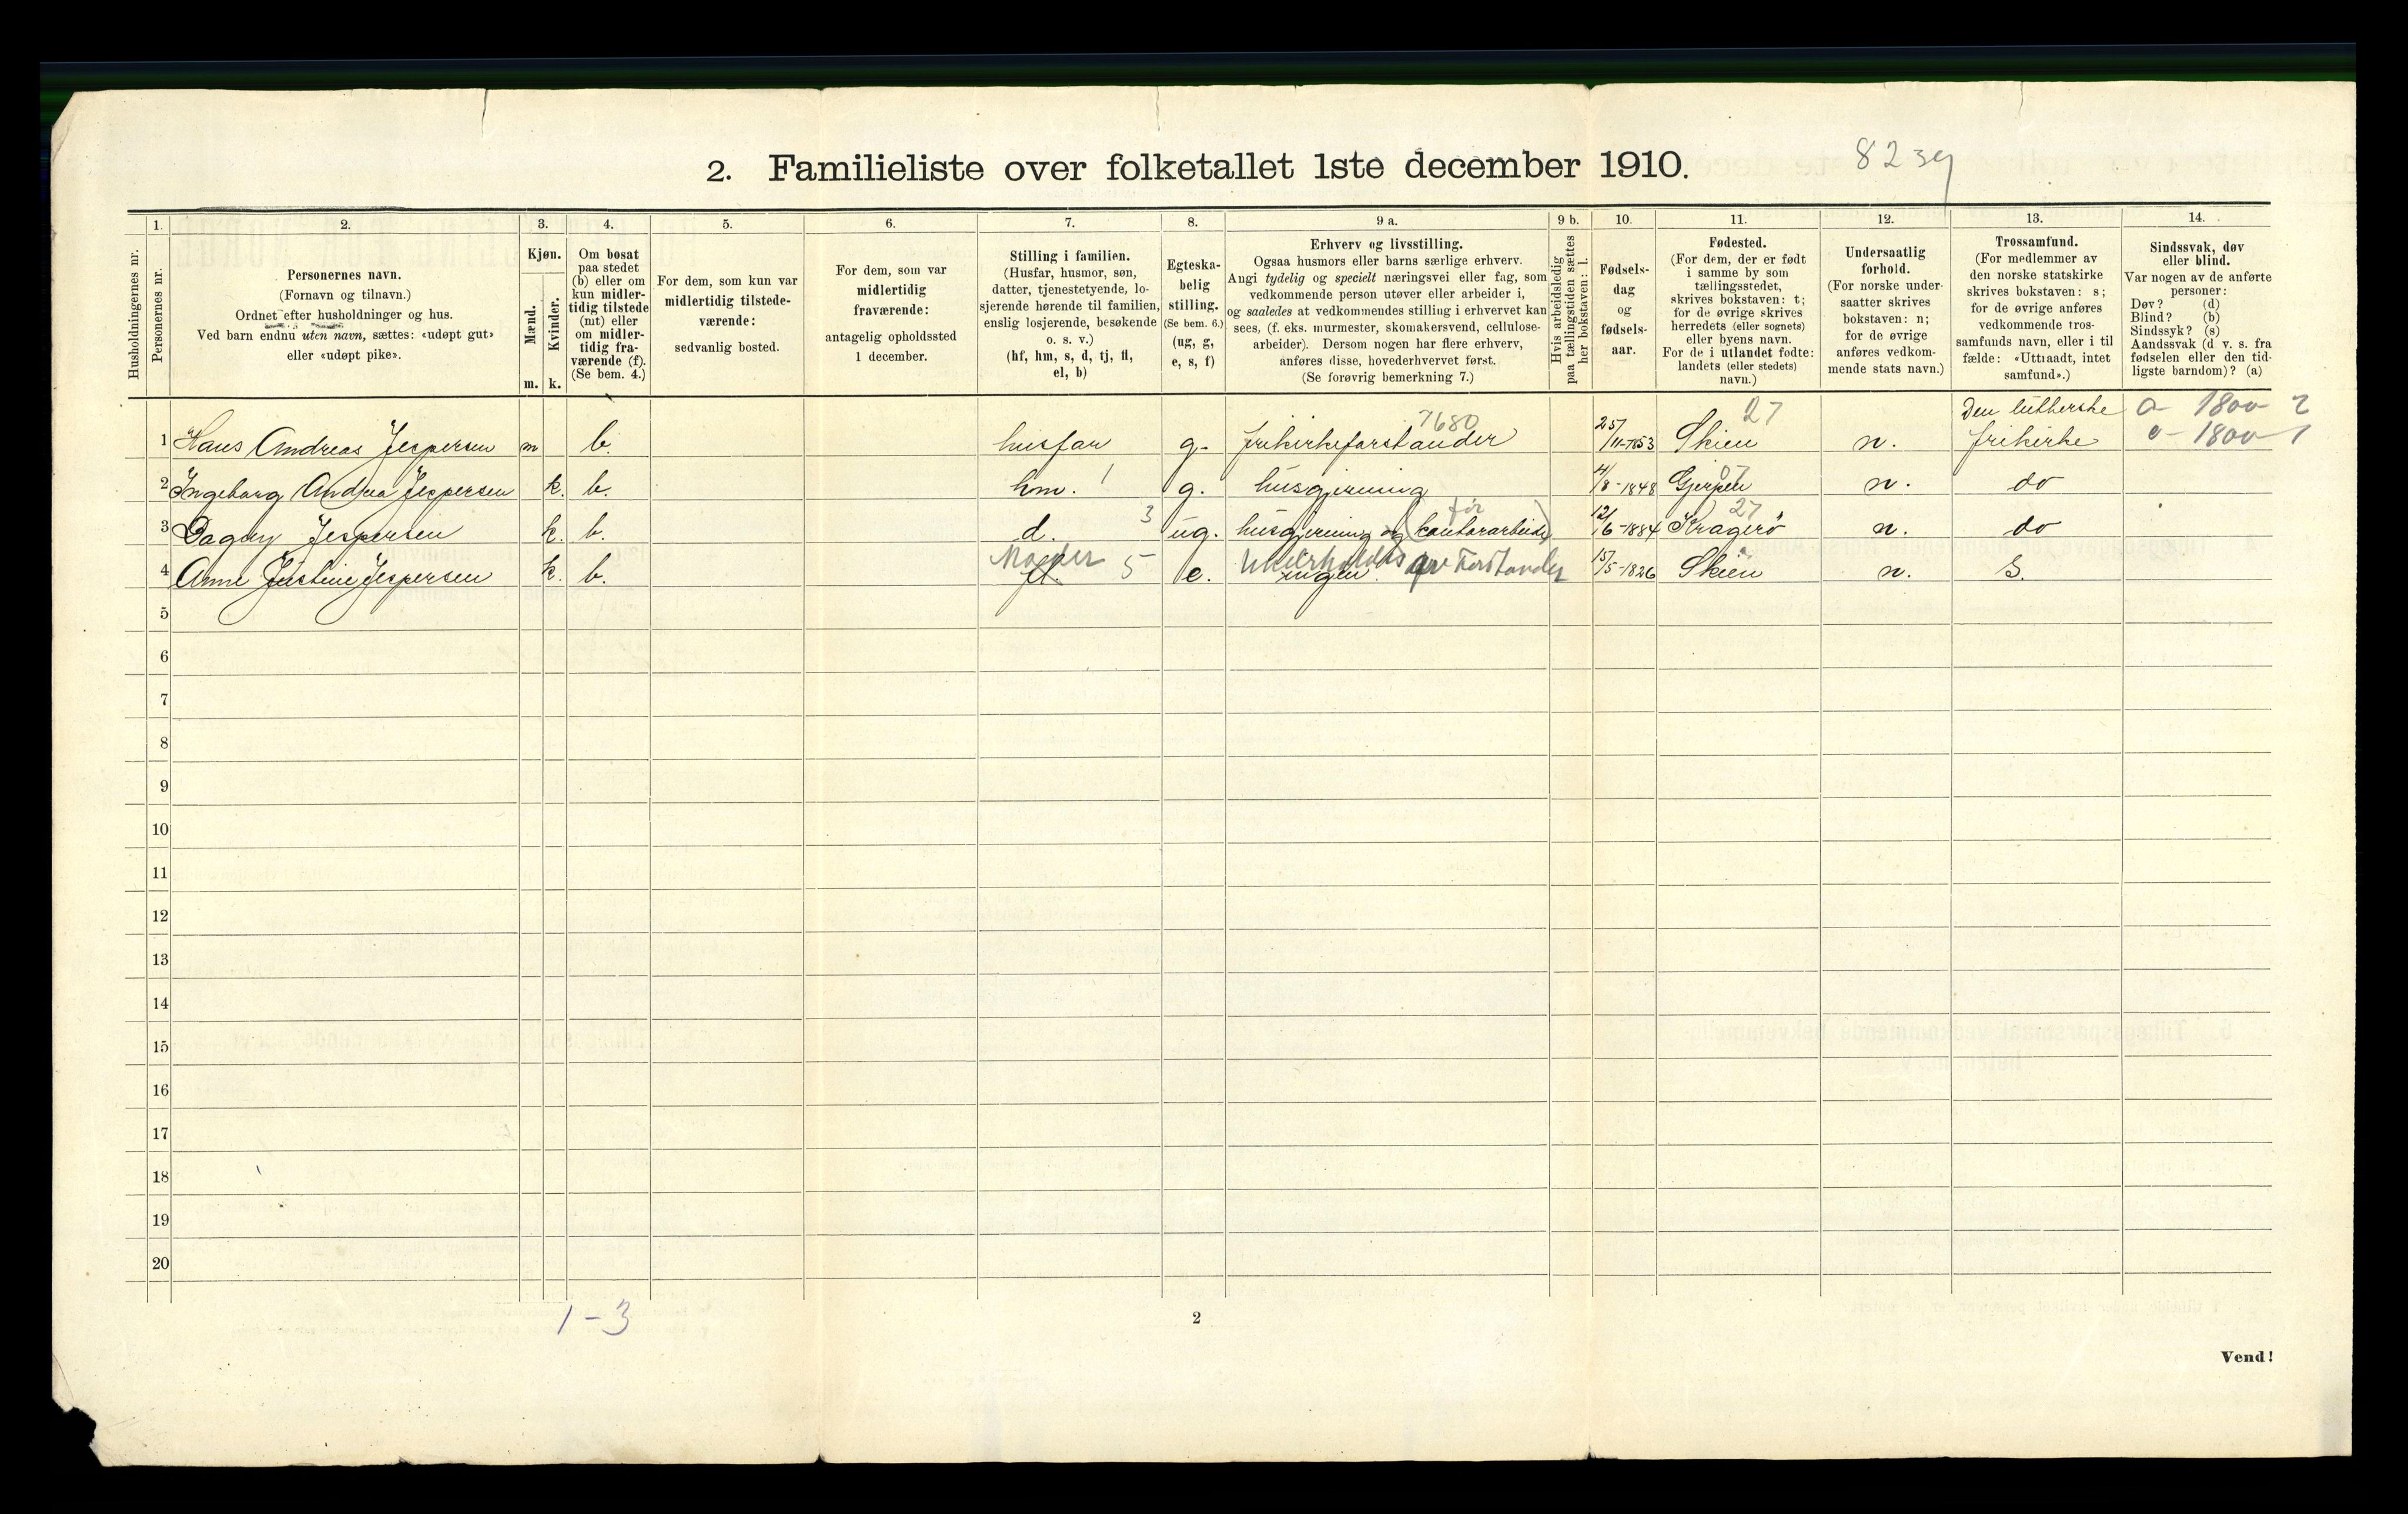 2. Familieliste over folketallet 1ste december 1910.
8239
1. 2. 3. 4. 5. 6. 7. 8. 9 a. 9 b. 10. 11. 12. 13. 14.
Husholdningernes nr.
Personernes nr.
Personernes navn.
(Fornavn og tilnavn.)
Ordnet efter husholdninger og hus.
Ved barn endnu uten navn, sættes: «udøpt gut»
eller «udøpt pike».
Kjøn.
Mænd.
Kvinder.
m. k.
Om bosat
paa stedet
(b) eller om
kun midler-
tidig tilstede
(mt) eller
om midler-
tidig fra-
værende (f).
(Se bem. 4.)
For dem, som kun var
midlertidig tilstede-
værende:
sedvanlig bosted.
For dem, som var
midlertidig
fraværende:
antagelig opholdssted
1 december.
Stilling i familien.
(Husfar, husmor, søn,
datter, tjenestetyende, lo-
sjerende hørende til familien,
enslig losjerende, besøkende
o. s. v.)
(hf, hm, s, d, tj, fl,
el, b)
Egteska-
belig
stilling.
(Se bem. 6.)
(ug, g,
e, s, f)
Erhverv og livsstilling.
Ogsaa husmors eller barns særlige erhverv.
Angi tydelig og specielt næringsvei eller fag, som
vedkommende person utøver eller arbeider i,
og saaledes at vedkommendes stilling i erhvervet kan
sees, (f. eks. murmester, skomakersvend, cellulose-
arbeider). Dersom nogen har flere erhverv,
anføres disse, hovederhvervet først.
(Se forøvrig bemerkning 7.)
Hvis arbeidsledig
paa tællingstiden sættes
her bokstaven: l.
Fødsels-
dag
og
fødsels-
aar.
Fødested.
(For dem, der er født
i samme by som
tællingsstedet,
skrives bokstaven: t;
for de øvrige skrives
herredets (eller sognets)
eller byens navn.
For de i utlandet fødte:
landets (eller stedets)
navn.)
Undersaatlig
forhold.
(For norske under-
saatter skrives
bokstaven: n;
for de øvrige
anføres vedkom-
mende stats navn.)
Trossamfund.
(For medlemmer av
den norske statskirke
skrives bokstaven: s;
for de øvrige anføres
vedkommende tros-
samfunds navn, eller i til
fælde: «Uttraadt, intet
samfund».)
Sindssvak, døv
eller blind.
Var nogen av de anførte
personer:
Døv? (d)
Blind? (b)
Sindssyk? (s)
Aandssvak (d v. s. fra
fødselen eller den tid-
ligste barndom)? (a)
7680 27 Den lutherske a - 1800 - 2
1 Hans Andreas Jespersen m b. husfar g. frikirkeforstander 25/11-1853 Skien n. frikirke e - 1800 - 1
2 Ingeborg Andrea Jespersen k. b. hm. 1 g. husgjerning 4/8-1848 Gjerpen 07 n. do
3 Dagny Jespersen k. b. d. 3 ug. husgjerning og (før kontorarbeide) 12/6-1884 Kragerö 27 n. do
4 Anne Justine Jespersen k. b. fl. Moder 5 e. ingen Underholdes av Forstander 15/5-1826 Skien n. S.
5
6
7
8
9
10
11
12
13
14
15
16
17
18
19
20
1 - 3
2
Vend!